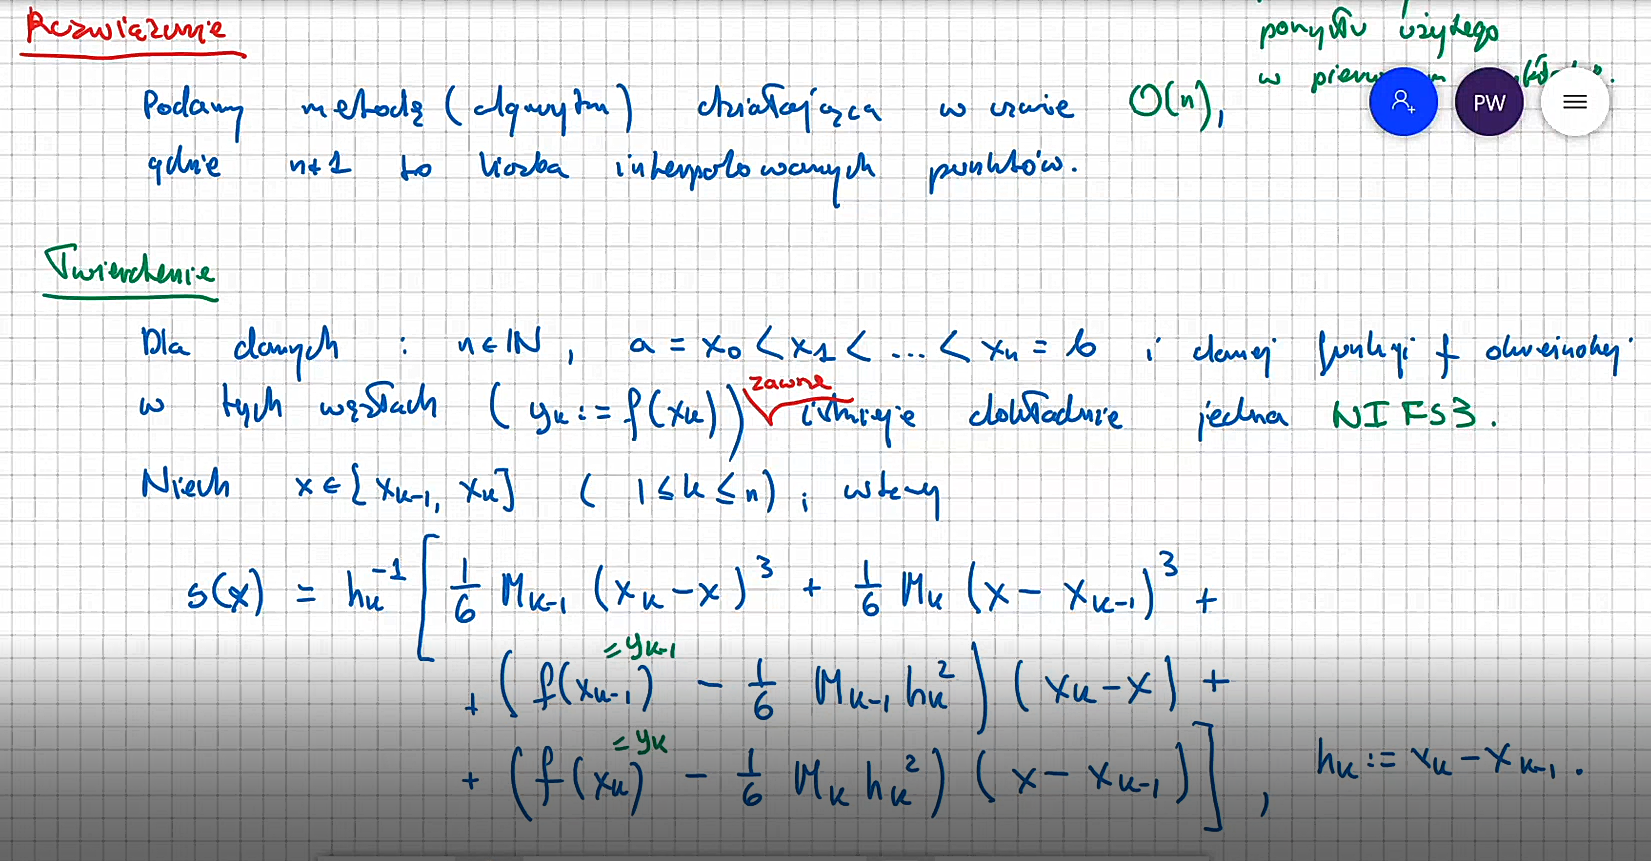 pomysłu użytego
w
Rozwiązanie
PW
Podamy metodę (algorytm) działającą w czasie O(n),
gdzie n+1 to liczba interpolowanych punktów.
Twierdzenie
Dla danych : n∈ℕ, a = x₀ < x₁ < ... < xₙ = b i danej funkcji f określonej
zawsze
w tych węzłach (yₖ := f(xₖ)) istnieje dokładnie jedna NIFS3.
Niech x∈[xₖ₋₁, xₖ] (1≤k≤n); wtedy
s(x) = hₖ⁻¹ [ 1/6 Mₖ₋₁ (xₖ-x)³ + 1/6 Mₖ (x-xₖ₋₁)³ +
=yₖ₋₁
+ (f(xₖ₋₁) - 1/6 Mₖ₋₁ hₖ²) (xₖ-x) +
=yₖ
+ (f(xₖ) - 1/6 Mₖ hₖ²) (x-xₖ₋₁) ], hₖ := xₖ-xₖ₋₁.